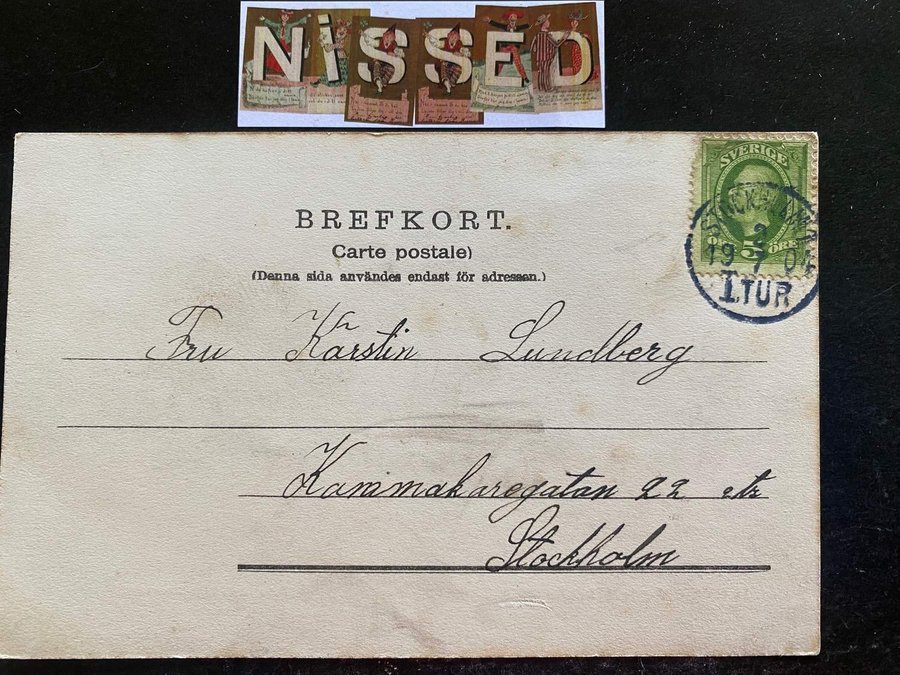 NiSSED
BREFKORT.
Carte postale)
(Denna sida användes endast för adressen.)
SVERIGE
5 ÖRE
STOCKHOLM
2
19 7 04
1.TUR
Fru Karstin Lundberg
Kammakaregatan 22 
Stockholm